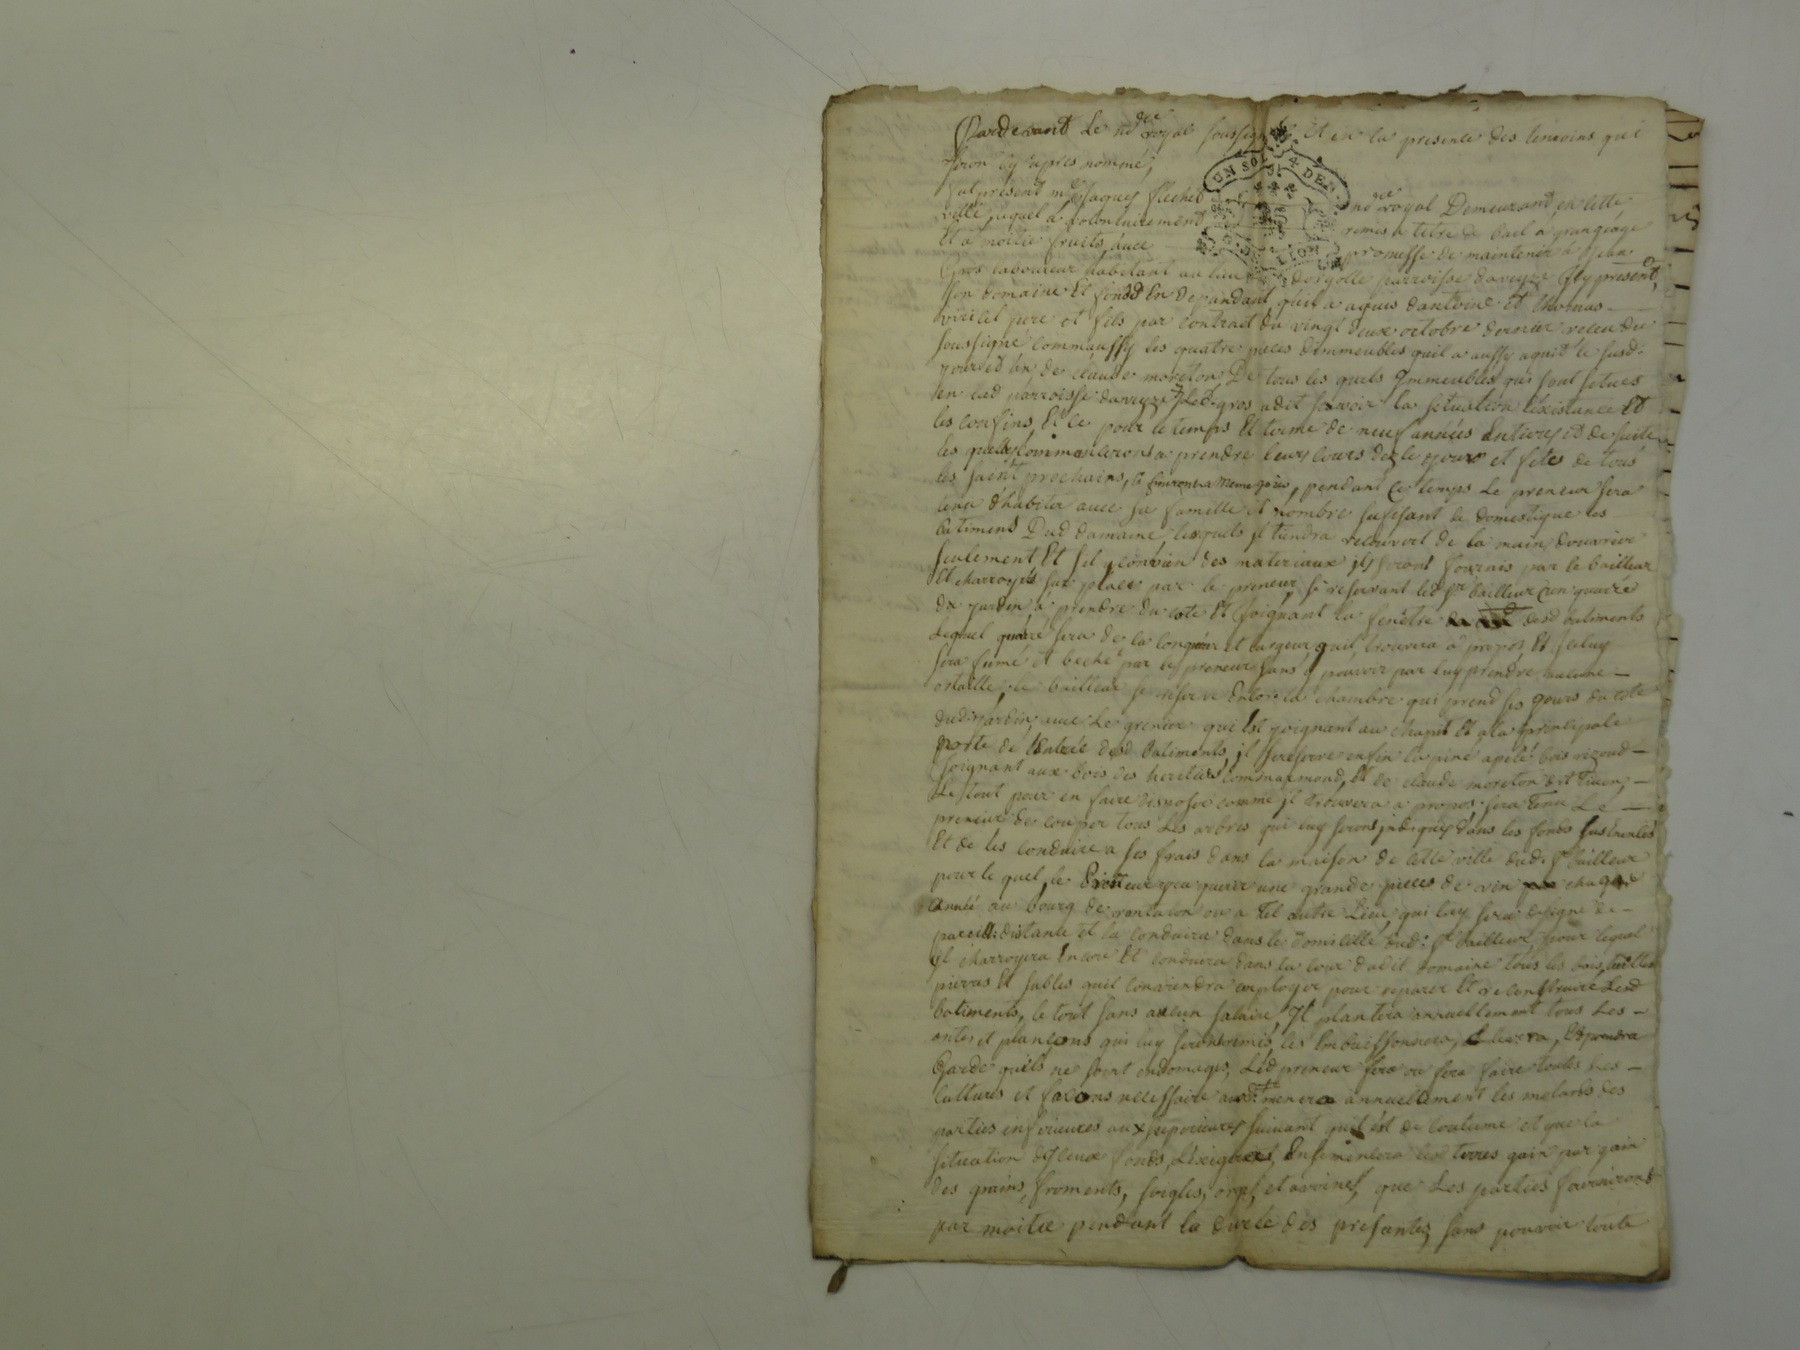 Pardevant Le no.re royal soussigné Et en la presence des temoins qui
seron cy apres nommé,
fut présent m.e Jaques flechet no.re royal Demeurant en cette
ville, lequel a volontairement remis a titre de bail a grangeage
Et a moitié fruits, avec promesse de maintenir à Jean
Gros laboureur habitant au lieu parroisse daveyze Icy présent,
son domaine Et fonds En dépandant quil a aquis dantoine et thomas
père et fils par contrait du vingt deux octobre dernier receu du
soussigné commaussy les quatre pieces dimmeubles quil a aussy aquit le susd:
jour et an de claude moreton, De tous les quels Jmmeubles qui sont situés
en lad parroisse daveyze Led. gros a dit scavoir la situation l'existance Et
les confins, Et ce pour le temps Et terme de neuf années Entieres et de suite
les quelles commancerons a prendre leurs cours dez le jour et fetes de tous
les saint prochains, et finiront a meme jour, pendant ce temps Le preneur sera
tenu d'habiter avec sa famille et nombre sufisant de domestique les
batiments Dud domaine, lesquels jl tiendra recouvert de la main douvrier
seulement Et sil y convien des materiaux jls seront fournis par le bailleur
Et charroyés sur place par le preneur, se reservant led Sr bailleur un quarré
de jardin à prendre du coté Et joignant la fenetre desd batiments
Lequel quarré sera de la longueur et largeur quil trouvera à propos, Et jceluy
sera fumé et beché par le preneur sans y pouvoir par luy prendre aucune
ortaille, le bailleur se reserve Encore la chambre qui prend ses jours du coté
dud: jardin, avec Le grenier qui Est joignant au chapit Et a la principale
porte de l'entrée desd batiments, jl se reserve enfin la pine apelé bois rigoud
joignant aux bois des heretiers commarmond, Et de claude moreton dit
Le tout pour en faire disposer comme jl trouvera a propos: sera tenu Le
preneur de couper tous Les arbres qui luy serons jndiqués dans les fonds susénoncés
Et de les conduire a ses frais dans la maison de cette ville dud. Sr bailleur
pour le quel, le preneur jra querir une grande pieces de vin chaque
année au bourg de ou a tel autre Lieu qui luy sera designé de
pareille distante et la conduira dans le domicille dud: Sr bailleur, pour lequel
jl charroyera Encore Et conduira dans la cour dudit domaine tous les bois, tuilles
pierres Et sables quil conviendra employer pour reparer Et reconstruire Lesd
batiments, le tout sans aucun salaire, Jl plantera annuellement tous Les
antes et plançons qui luy seront remis, les Embuissonnera, Elevera, Et prendra
Garde quils ne soint endomagés, Led preneur fera ou fera faire toutes Les
cultures et façons necessaire menera annuellement les molards des
parties inferieures aux superieures suivant quil est de coutume et que la
situation diceux fonds, L'exigeront, Ensemencera les terres gain par gain
des grains, froments, soigles, orges, et avoines, que Les parties fourniront
par moitié pendant la durée des présentes, sans pouvoir toute
UN SOL DEN.
LION